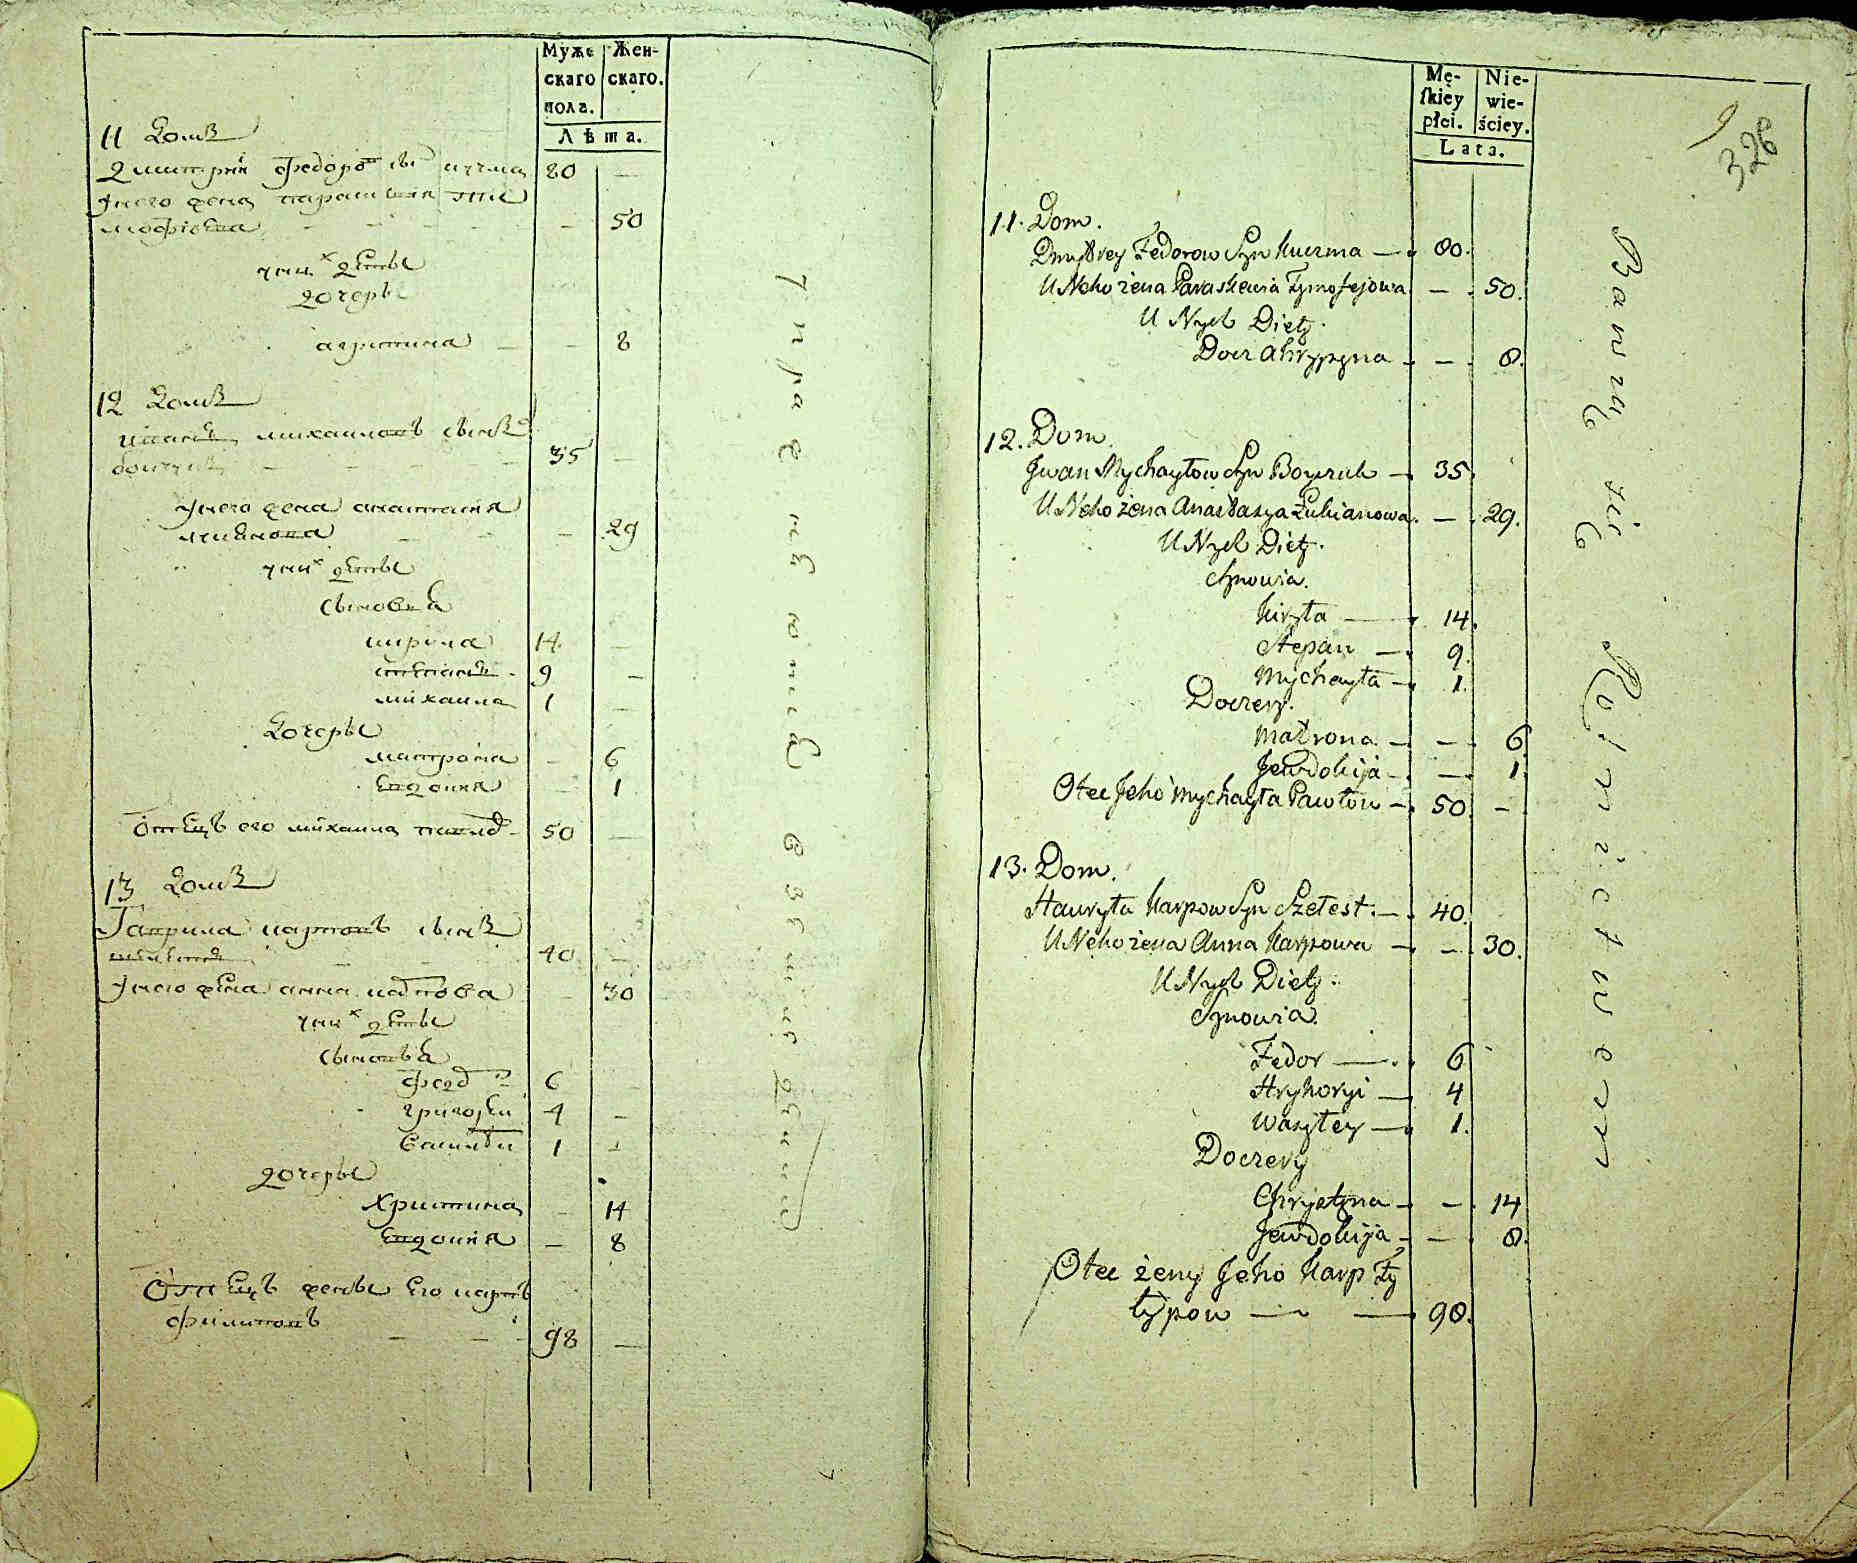 Муже Жен-
скаго скаго.
пола.
Лѣта.
11 Домъ
Дмитрій Федоровъ сынъ кучма 80 —
У него жена параскевия тимофіова — 50
у них дѣты
дочеры
агрипина — — 8
12 Домъ
иванъ михаиловъ сынъ
бойчукъ — 35 —
У него жена анастасия
лукянова — — 29
у них дѣты
сыновья
кирила 14 —
степанъ 9 —
михаила 1 —
дочеры
матрона — 6
евдокия — 1
отецъ его михаила павловъ 50 —
13 Домъ
Гаврила карповъ сынъ
шелестъ — 40 —
У него жена анна карпова — 30
у них дѣты
сыновья
Федоръ 6 —
григорій 4 —
василій 1 —
дочеры
христина — 14
евдокия — 8
Отецъ жены его карпъ
филиповъ — — 98 —
Mę- Nie-
ſkiey wie-
płci. ściey.
Lata.
9
326
11. Dom.
Dmytrey Fedorow Syn Kuczma — 80.
U Neho żena Paraskewia Tymofejowa — 50.
U Nych Diety.
Docz Ahrypyna — — 8.
12. Dom.
Jwan Mychayłow Syn Boyczuk — 35
U Neho żena Anastasya Łukianowa. — 29.
U Nych Diety.
Synowia.
Kiryła — 14.
Stepan — 9.
Mychayła — 1.
Doczery.
Matrona — — 6
Jewdokija — — 1
Otec Jeho Mychayła Pawłow — 50. —
13. Dom.
Hawryła Karpow Syn Szelest. — 40.
U Neho żena Anna Karpowa — — 30.
U Nych Diety.
Synowia.
Fedor — 6
Hryhoryi — 4
Wasyley — 1.
Doczery
Chrystyna — — 14
Jewdokija — — 8.
Otec żeny Jeho Karp Fy
łypow — — 98.
Bawią się Rolnictwem